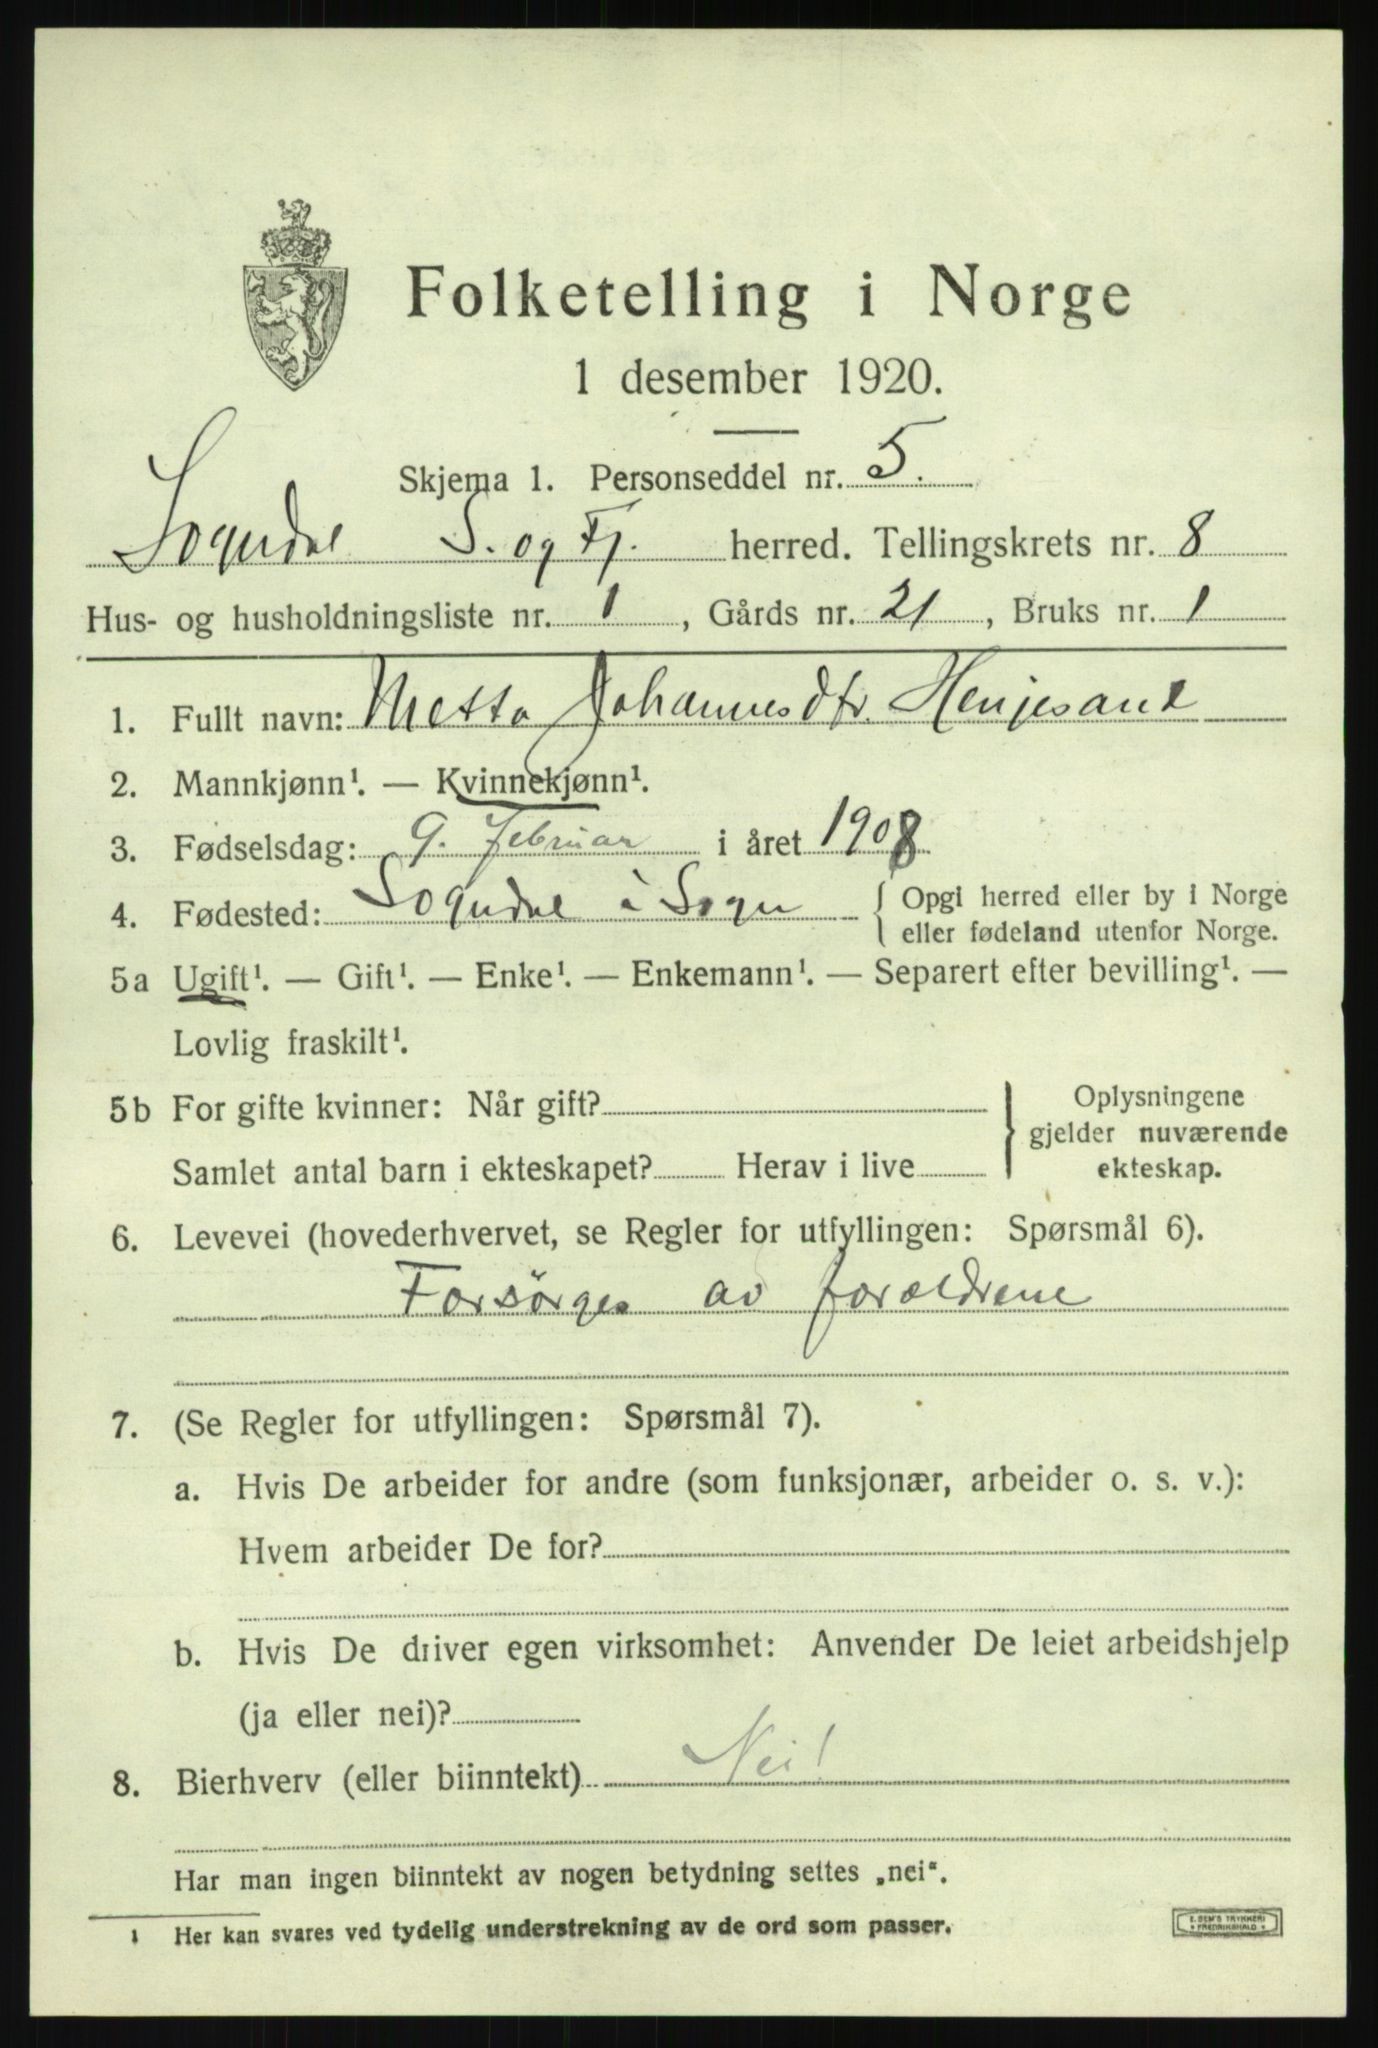 Folketelling i Norge
1 desember 1920.
Skjema 1. Personseddel nr. 5.
Sogndal S. og Fj. herred. Tellingskrets nr. 8
Hus- og husholdningsliste nr. 1, Gårds nr. 21, Bruks nr. 1
1. Fullt navn: Metta Johannesdtr. Henjesand
2. Mannkjønn¹. — Kvinnekjønn¹.
3. Fødselsdag: 9. Februar i året 1908
4. Fødested: Sogndal i Sogn { Opgi herred eller by i Norge
eller fødeland utenfor Norge.
5a Ugift¹. — Gift¹. — Enke¹. — Enkemann¹. — Separert efter bevilling¹. —
Lovlig fraskilt¹.
5b For gifte kvinner: Når gift?
Samlet antal barn i ekteskapet? Herav i live
} Oplysningene
gjelder nuværende
ekteskap.
6. Levevei (hovederhvervet, se Regler for utfyllingen: Spørsmål 6).
Forsörges av foræeldrene
7. (Se Regler for utfyllingen: Spørsmål 7).
a. Hvis De arbeider for andre (som funksjonær, arbeider o. s. v.):
Hvem arbeider De for?
b. Hvis De driver egen virksomhet: Anvender De leiet arbeidshjelp
(ja eller nei)?
8. Bierhverv (eller biinntekt) Nei!
Har man ingen biinntekt av nogen betydning settes „nei".
1 Her kan svares ved tydelig understrekning av de ord som passer.
E. SEM'S TRYKKERI
* FREDRIKSHALD *